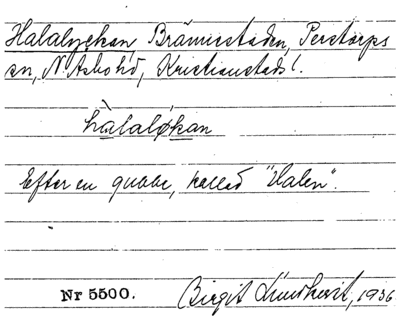 Halalyckan Brämisstaden, Perstorps
sn, N. Åsbo hd, Kristianstads l.
hàlaløkan
Efter en gubbe, kallad "Halen".
Nr 5500.
Birgit Lundkvist, 1936